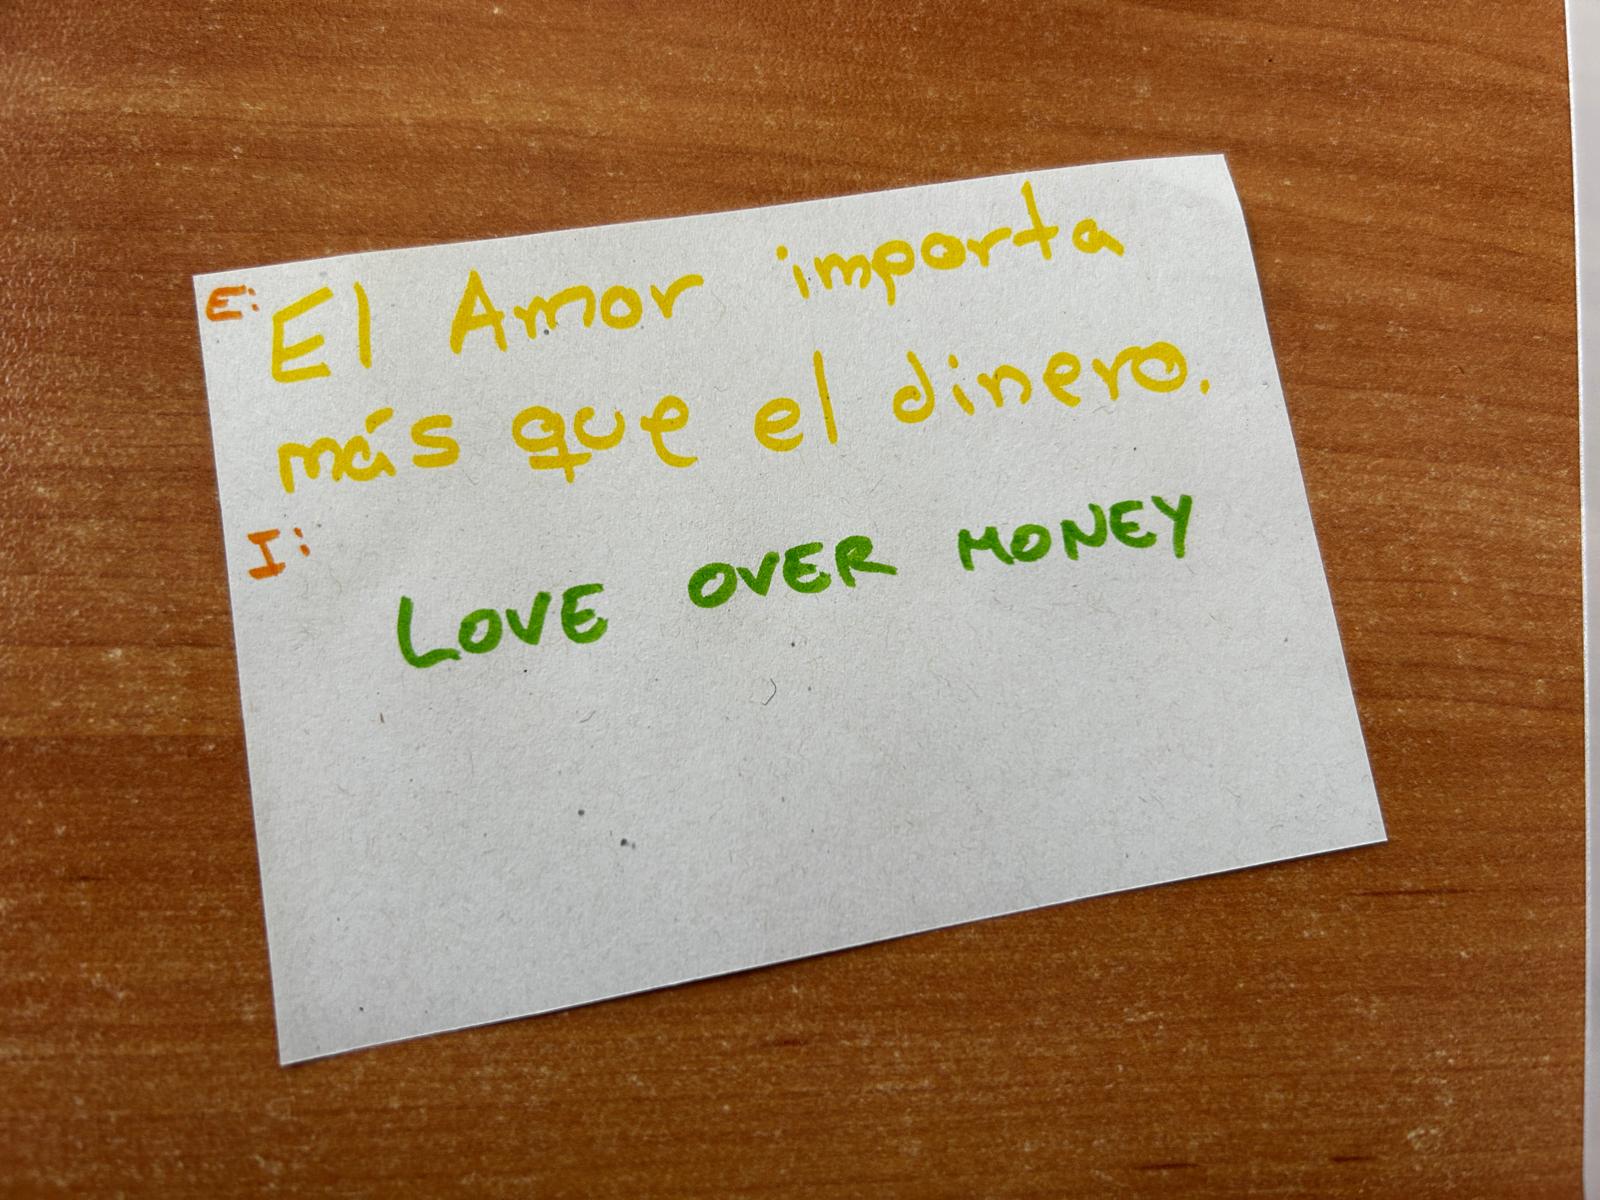 E: El Amor importa
más que el dinero.
I:
LOVE OVER MONEY